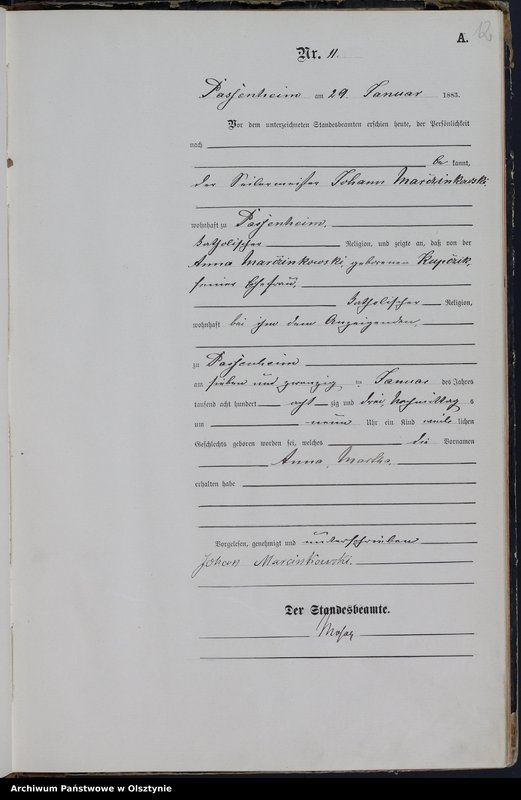 A. 12
Nr. 11.
Passenheim am 29. Januar 1883.
Vor dem unterzeichneten Standesbeamten erschien heute, der Persönlichkeit
nach
be kannt,
der Seilermeister Johann Marczinkowski,
wohnhaft zu Passenheim,
katholischer Religion, und zeigte an, daß von der
Anna Marczinkowski, geborenen Kupczik,
seiner Ehefrau,
katholischer Religion,
wohnhaft bei ihm dem Anzeigenden,
zu Passenheim
am sieben und zwanzig ten Januar des Jahres
tausend acht hundert acht zig und drei Nachmittag s
um neun Uhr ein Kind weib lichen
Geschlechts geboren worden sei, welches die Vornamen
Anna, Martha,
erhalten habe
Vorgelesen, genehmigt und unterschrieben
Johan Marcinkowski.
Der Standesbeamte.
Archiwum Państwowe w Olsztynie